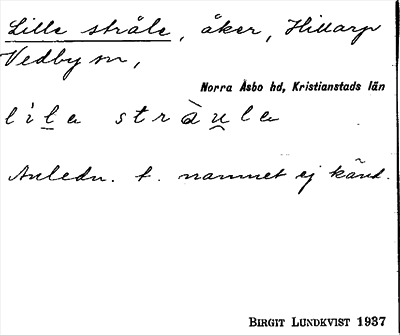 Lille stråle, åker, Hillarp
Vedby sn,
Norra Åsbo hd, Kristianstads län
lila stràula
Anledn. t. namnet ej känd.
BIRGIT LUNDKVIST 1937